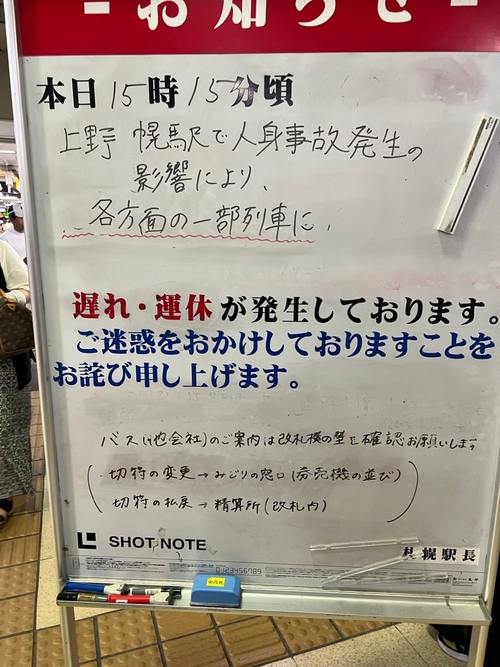 お知らせ
本日15時15分頃
上野幌駅で人身事故発生の
影響により、
各方面の一部列車に、
遅れ・運休が発生しております。
ご迷惑をおかけしておりますことを
お詫び申し上げます。
バス(他会社)のご案内は改札横の壁を確認お願いします
切符の変更→みどりの窓口(券売機の並び)
切符の払戻→精算所(改札内)
SHOT NOTE
札幌駅長
0123456789